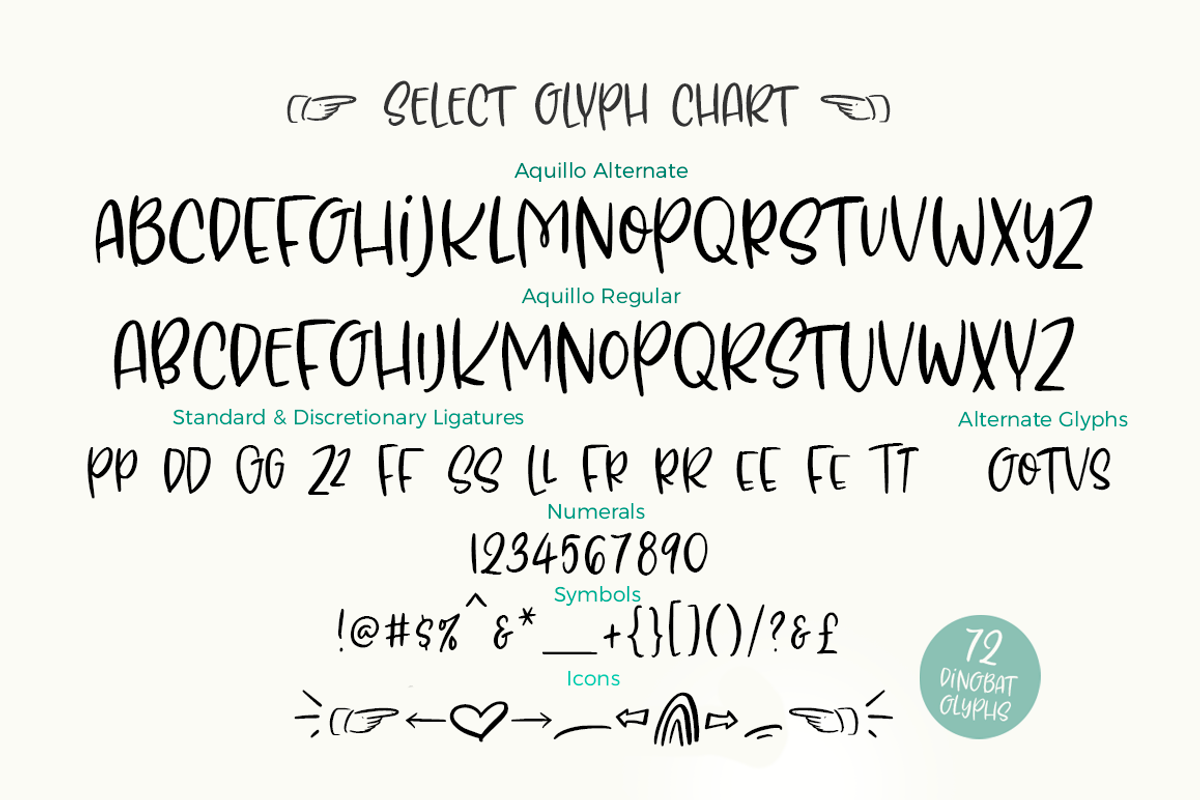 SELECT GLYPH CHART
Aquillo Alternate
ABCDEFGHiJKLMNOPQRSTUVWXYZ
Aquillo Regular
ABCDEFGHIJKMNOPQRSTUVWXYZ
Standard & Discretionary Ligatures
PP DD GG ZZ FF SS LL FR RR EE FE TT
Alternate Glyphs
GOTVS
Numerals
1234567890
Symbols
!@#$%^&*__+{}[]()/?&£
Icons
72
DiNGBAT
GLYPHS